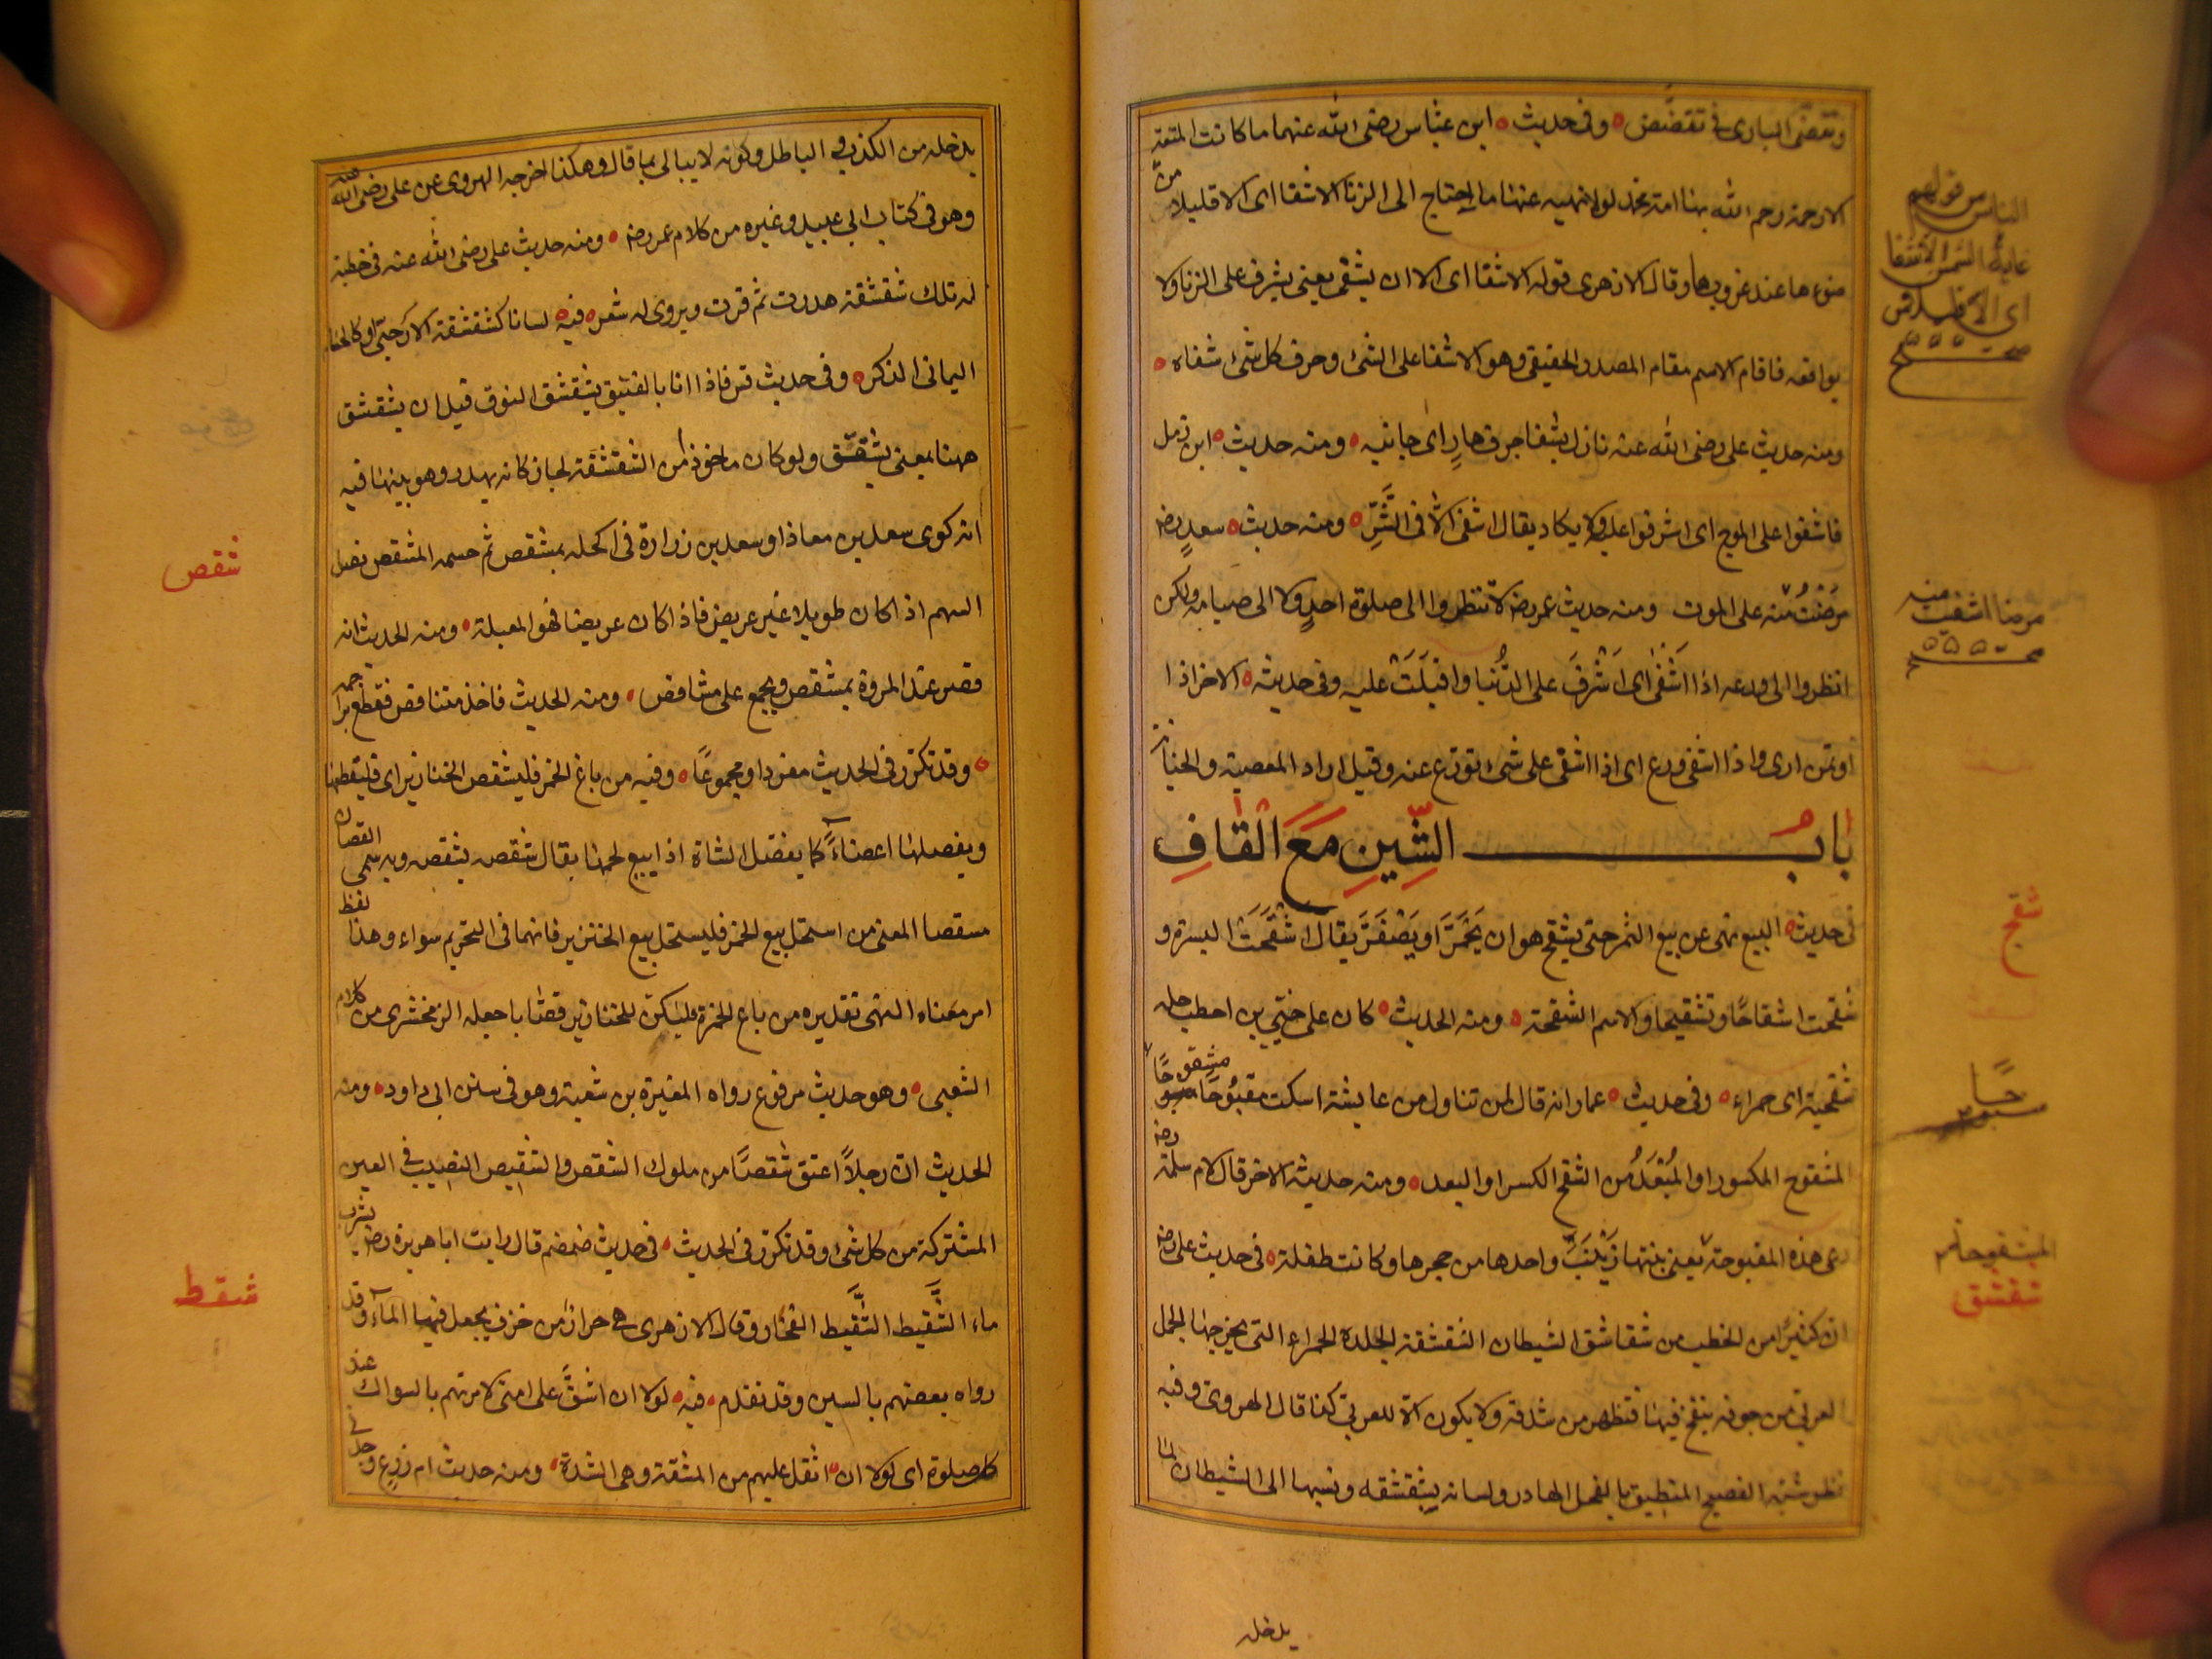 وتقضّى البازى فى تقضّض ه وفى حديث ه ابن عباس رضى الله عنهما ما كانت المتعة
الا رحمة رحم الله بها امة محمد لولا نهيه عنها ما احتاج الى الزنا الا شفا اى الا قليلا من
الناس من قولهم
غابت الشمس الا شفا
اى الا قليلا من
صح
ضوءها عند غروبها وقال الازهرى قوله الا شفا اى الا ان يشفى يعنى يشرف على الزنا ولا
يواقعه فاقام الاسم مقام المصدر الحقيقى وهو الاشفا على الشئ وحرف كل شئ شفاه ه
ومنه حديث على رضى الله عنه نازل بشفا جرف هارٍ اى جانبه ه ومنه حديث ه ابن زمل
فاشفوا على المرج اى اشرفوا عليه ولا يكاد يقال اشفى الّا فى الشَّرِّ ه ومنه حديث ه سعدٍ رضه
مرضت منه على الموت ومنه حديث عمر رضه لا تنظروا الى صلوة احدٍ ولا الى صيامه ولكن
مرضا اشفيت منه
صح
انظروا الى ورعه اذا اَشْفٰى اى اَشْرَفَ على الدُّنيا واقبَلَتْ عليه وفى حديث ه الاخر اذا
اؤتمن ادى واذا اشفى ورع اى اذا اشفى على شئ تورّع عنه وقيل اراد المعصية والخيانة
بابُ الشِّينِ مَعَ الْقَافِ
شقح
فى حديث ه البيع نهى عن بيع الثمر حتى يشقح هو ان يَحْمَرَّ او يَصْفَرَّ يقال اشْقَحَت البسرة و
شقحت اشقاحًا وتشقيحا والاسم الشقحة ه ومنه الحديث ه كان على حُيَيّ بن اخطب حلة
شقحية اى حمراء ه وفى حديث ه عمار انه قال لمن تناول من عايشة اسكت مقبُوحًا مشقوحًا
المشقوح المكسور او المُبْعَدُ من الشقح الكسر او البعد ه ومنه حديثه الاخر قال لام سلمة رضه
دعى هذه المقبوحة يعنى بنتها زَيْنَبَ واخذها من حجرها وكانت طفلة ه فى حديث على رضه
المشقوحة
شقشق
ان كثيرًا من الخطب من شقاشق الشيطان الشقشقة الجلدة الحمراء التى يخرجها الجمل
العربى من جوفه ينفخ فيها فتظهر من شدقه ولا يكون الّا للعربى كذا قال الهروى وفيه
نظر شبّه الفصيح المنطيق بالفحل الهادر ولسانه بشقشقه ونسبها الى الشيطان لما
يدخله
يدخله من الكذب والباطل وكونه لا يبالى بما قال وهكذا اخرجه الهروى عن على رضى الله عنه
وهو فى كتاب ابى عبيد وغيره من كلام عمر رضه ه ومنه حديث على رضى الله عنه فى خطبة
له تلك شقشقة هدرت ثم قرت ويروى له شعر ه فيه ه لسانا كشقشقة الارحبىّ او كالحسام
اليمانى الذكر ه وفى حديث قس فاذا انا بالفنيق يشقشق النوق قيل ان يشقشق
ههنا بمعنى يُشقِّق ولو كان ماخوذًا من الشقشقة لجاز كانه يهدر وهو بينها فيه
شقص
انه كوى سعد بن معاذ او سعد بن زرارة فى اكحله بمشقص ثم حسمه المشقص نصل
السهم اذا كان طويلا غير عريض فاذا كان عريضا فهو المعبلة ه ومنه الحديث انه
قصر عند المروة بمشقص ويجمع على مشاقص ه ومنه الحديث فاخذ مشاقص فقطع براجمه
ه وقد تكرر فى الحديث مفردا ومجموعًا ه وفيه من باع الخمر فليشقص الخنازير اى فليقطعها
ويفصلها اعضاءً كما يفصّل الشاة اذا بيع لحمها يقال شقصه يشقصه وبه سمى القصاب
مشقصا المعنى من استحل بيع الخمر فليستحل بيع الخنزير فانهما فى التحريم سواء وهذا لفظ
امر معناه النهى تقديره من باع الخمر فليكن للخنازير قصّابا جعله الزمخشرى من كلام
الشعبى ه وهو حديث مرفوع رواه المغيرة بن شعبة وهو فى سنن ابى داود ه ومنه
الحديث ان رجلاً اعتق شقصًا من مملوك الشقص والشقيص النصيب فى العين
المشتركة من كل شئ وقد تكرر فى الحديث ه فى حديث ضمضم قال رايت ابا هريرة رضه يشرب
شقط
ماء الشَّقيط الشَّقيط الفخار وقال الازهرى هى جرار من خزف يجعل فيها الماء وقد
رواه بعضهم بالسين وقد تقدم ه فيه ه لولا ان اشقّ على امتى لامرتهم بالسواك عند
كل صلوة اى لولا ان اثقل عليهم من المشقة وهى الشدة ه ومنه حديث ام زرعٍ وجدنى